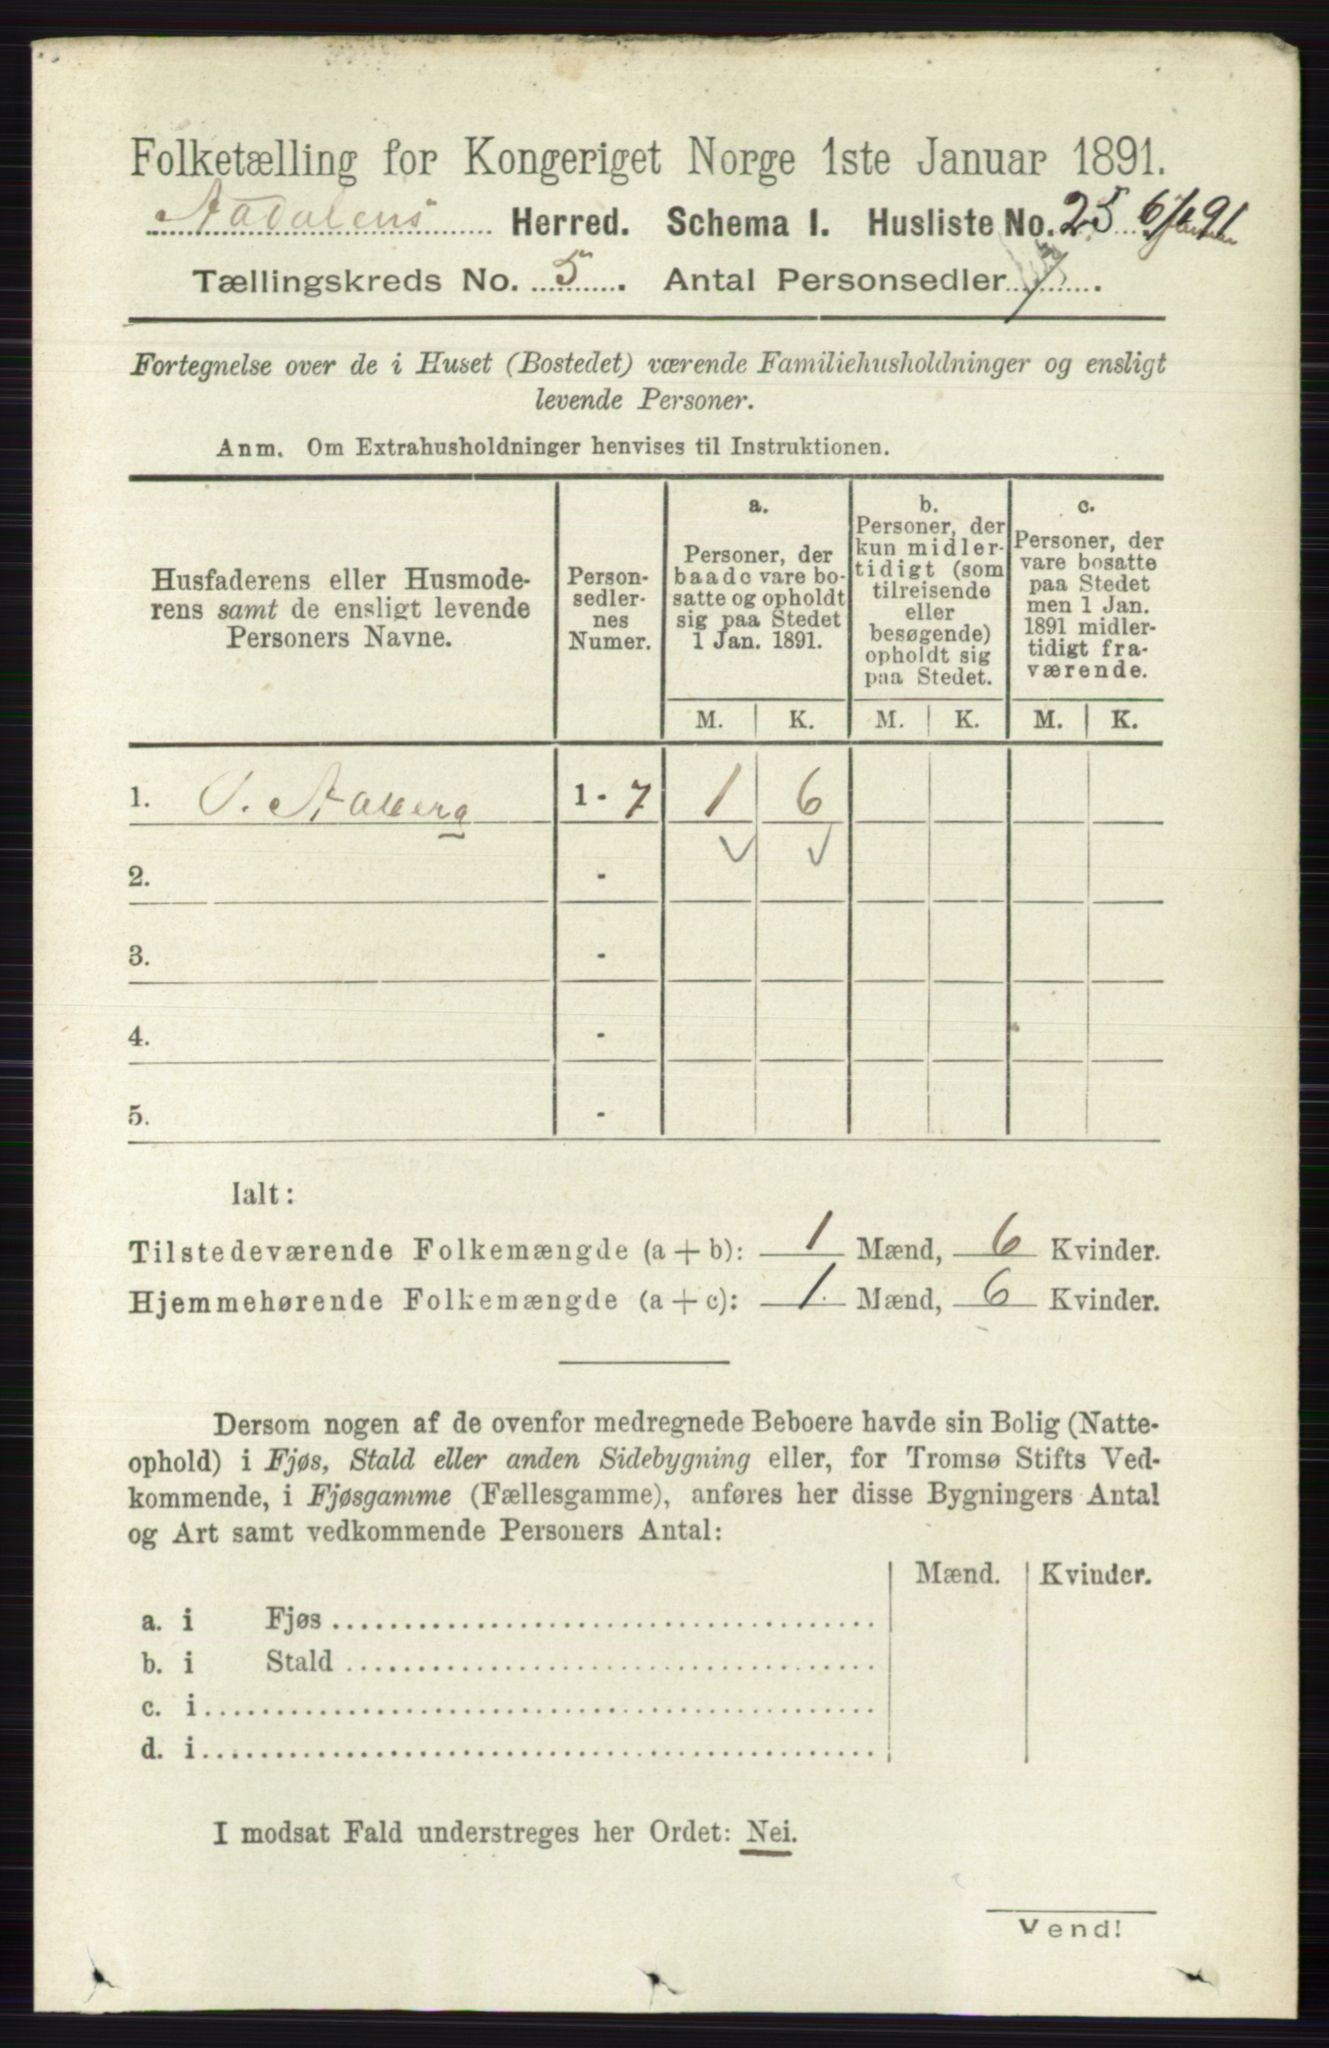 Folketælling for Kongeriget Norge 1ste Januar 1891.
Aadalens Herred. Schema I. Husliste No. 25 6/1 91
Tællingskreds No. 5. Antal Personsedler 7.
Fortegnelse over de i Huset (Bostedet) værende Familiehusholdninger og ensligt
levende Personer.
Anm. Om Extrahusholdninger henvises til Instruktionen.
Husfaderens eller Husmode-
rens samt de ensligt levende
Personers Navne.
Person-
sedler-
nes
Numer.
a.
Personer, der
baade vare bo-
satte og opholdt
sig paa Stedet
1 Jan. 1891.
b.
Personer, der
kun midler-
tidigt (som
tilreisende
eller
besøgende)
opholdt sig
paa Stedet.
c.
Personer, der
vare bosatte
paa Stedet
men 1 Jan.
1891 midler-
tidigt fra-
værende.
M. K. M. K. M. K.
1. 1 - 7 1 6
2. -
3. -
4. -
5. -
Ialt:
Tilstedeværende Folkemængde (a + b): 1 Mænd, 6 Kvinder.
Hjemmehørende Folkemængde (a + c): 1 Mænd, 6 Kvinder.
Dersom nogen af de ovenfor medregnede Beboere havde sin Bolig (Natte-
ophold) i Fjøs, Stald eller anden Sidebygning eller, for Tromsø Stifts Ved-
kommende, i Fjøsgamme (Fællesgamme), anføres her disse Bygningers Antal
og Art samt vedkommende Personers Antal:
Mænd. Kvinder.
a. i Fjøs
b. i Stald
c. i
d. i
I modsat Fald understreges her Ordet: Nei.
Vend!